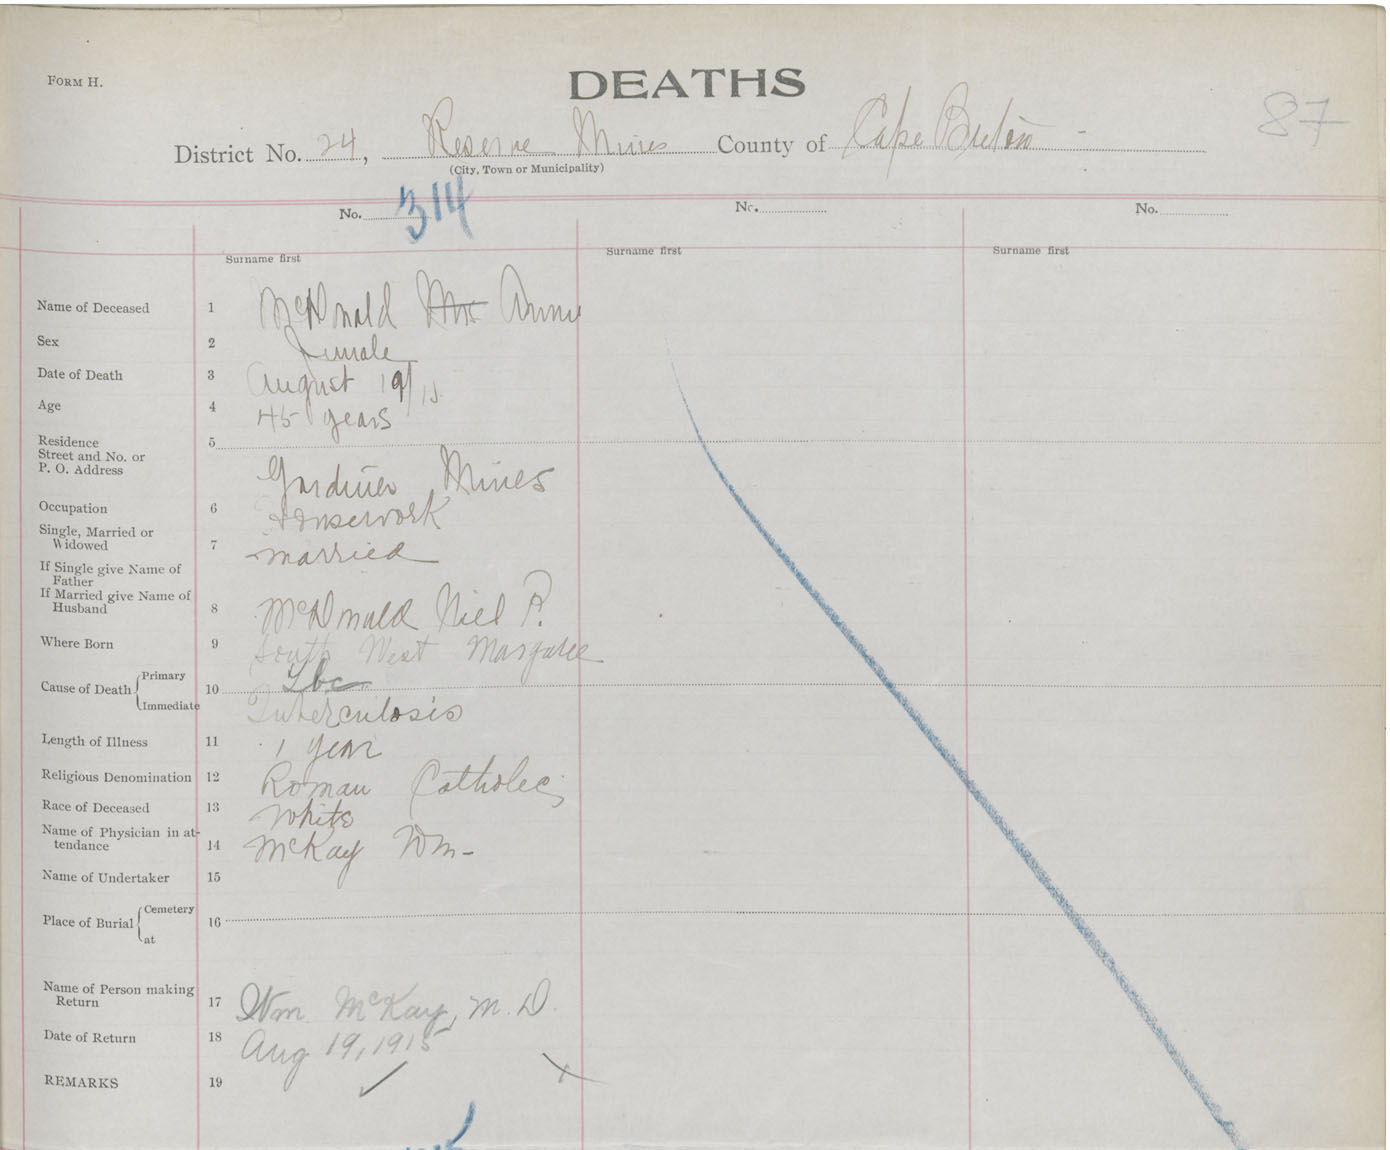 FORM H.
DEATHS
87
District No. 24, Reserve Mines County of Cape Breton -
(City, Town or Municipality)
No. 314 No. No.
Surname first Surname first Surname first
Name of Deceased 1 McDonald Mrs Annie
Sex 2 Female
Date of Death 3 August 19/15
Age 4 45 years
Residence 5
Street and No. or
P. O. Address Gardiner Mines
Occupation 6 Housework
Single, Married or
Widowed 7 married
If Single give Name of
Father
If Married give Name of
Husband 8 McDonald Niel P.
Where Born 9 South West Margaree
Cause of Death Primary 10 Tbc
Immediate Tuberculosis
Length of Illness 11 1 year
Religious Denomination 12 Roman Catholic
Race of Deceased 13 White
Name of Physician in at-
tendance 14 McKay Wm-
Name of Undertaker 15
Place of Burial Cemetery 16
at
Name of Person making
Return 17 Wm. McKay, M.D.
Date of Return 18 Aug 19, 1915
REMARKS 19